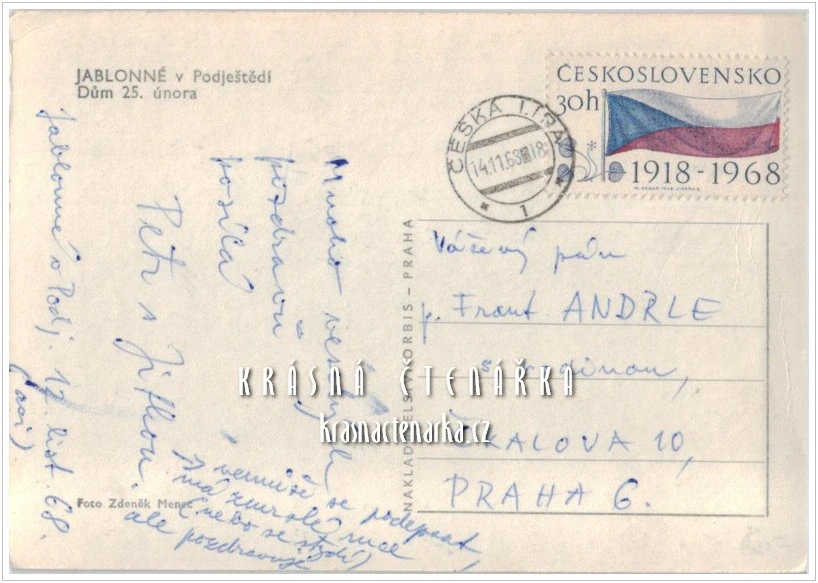 JABLONNÉ v Podještědí
Dům 25. února
Jablonné v Podj. 17. list. 68.
(asi)
Mnoho veselých
pozdravů
posílá
Petr s Jitkou.
nemůže se podepsat,
má zmrzlé ruce
(nebo se stydí)
ale pozdravuje
Foto Zdeněk Menec
NAKLADATELSTVÍ ORBIS – PRAHA
ČESKOSLOVENSKO
30h
1918-1968
ČESKÁ LÍPA
14.11.68 18
1
Vážený pán
p. Frant. ANDRLE
s rodinou,
ČKALOVA 10,
PRAHA 6.
KRÁSNÁ ČTENÁŘKA
krasnactenarka.cz